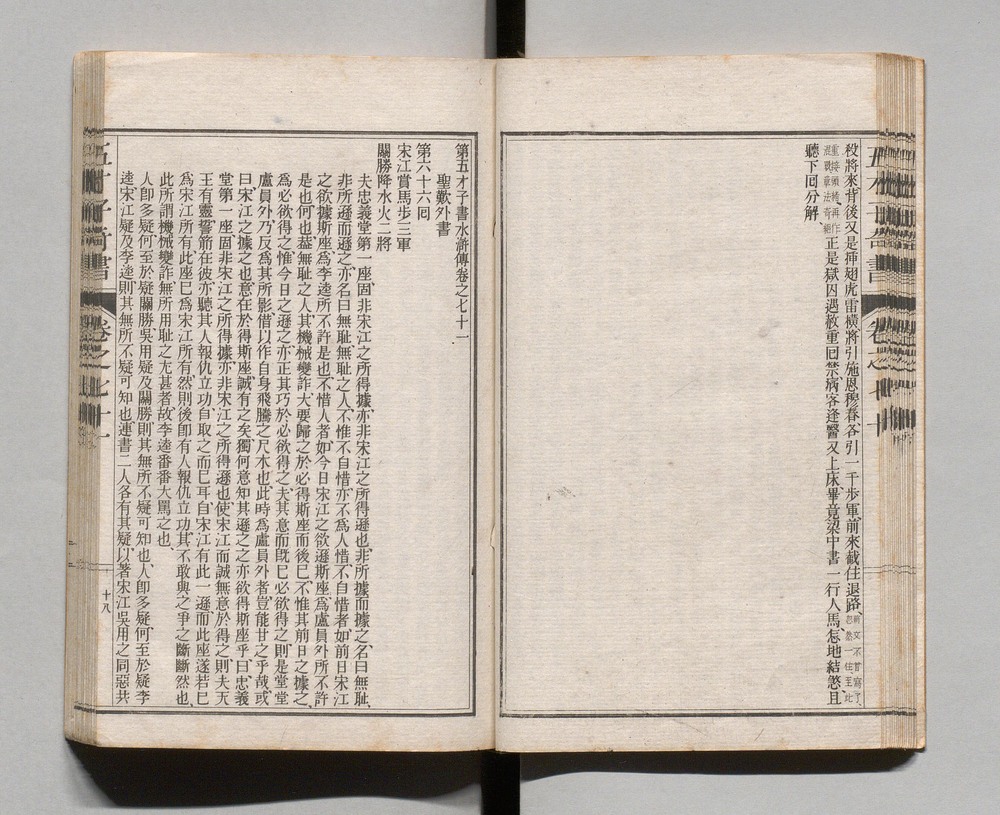 殺將來背後又是揷翅虎雷橫將引施恩穆春各引一千步軍前來截住退路
正是獄囚遇赦重回禁病客逢醫又上床畢竟梁中書一行人馬怎地結煞且
聽下回分解
第五才子書水滸傳卷之七十一
聖歎外書
第六十六回
宋江賞馬步三軍
關勝降水火二將
夫忠義堂第一座固非宋江之所得據亦非宋江之所得遜也非所據而據之名曰無恥
非所遜而遜之亦名曰無恥無恥之人不惟不自惜亦不爲人惜不自惜者如前日宋江
之欲據斯座爲李逵所不許是也不惜人者如今日宋江之欲遜斯座爲盧員外所不許
是也何也葢無恥之人其機械變詐大要歸之於必得斯座而後已不惟其前日之據之
爲必欲得之惟今日之遜之亦正其巧於必欲得之夫其意而旣已必欲得之則是堂堂
盧員外乃反爲其所影借以作自身飛騰之尺木也此時爲盧員外者豈能甘之乎哉或
曰宋江之據之也意在於得斯座誠有之矣獨何意知其遜之之亦欲得斯座乎曰忠義
堂第一座固非宋江之所得據亦非宋江之所得遜也使宋江而誠無意於得之則夫天
王有靈誓箭在彼亦聽其人報仇立功自取之而已耳自宋江有此一遜而此座遂若已
爲宋江所有此座已爲宋江所有然則後卽有人報仇立功其不敢與之爭之斷斷然也
此所謂機械變詐無所用恥之尤甚者故李逵番番大罵之也
人卽多疑何至於疑關勝吳用疑及關勝則其無所不疑可知也人卽多疑何至於疑李
逵宋江疑及李逵則其無所不疑可知也連書二人各有其疑以著宋江吳用之同惡共
十八